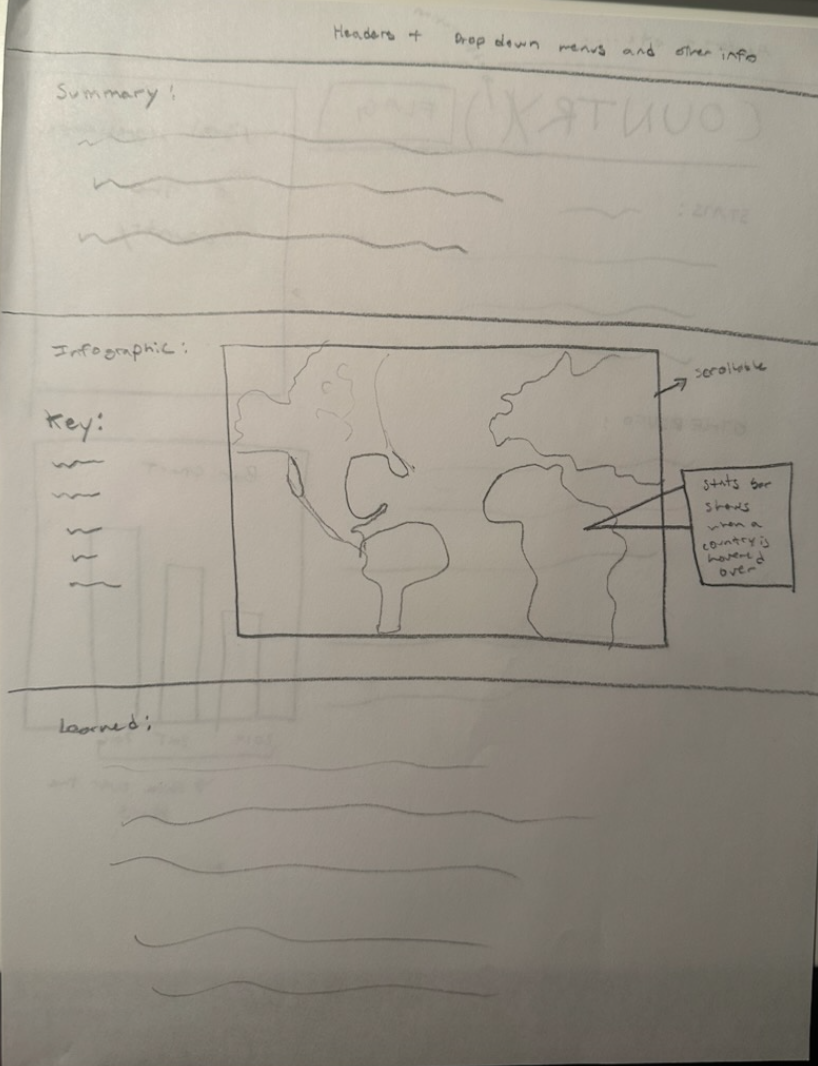 Headers + Drop down menus and other info
Summary:
Infographic:
scrollable
Key:
Stats bar
shows
when a
country is
hovered
over
Learned: